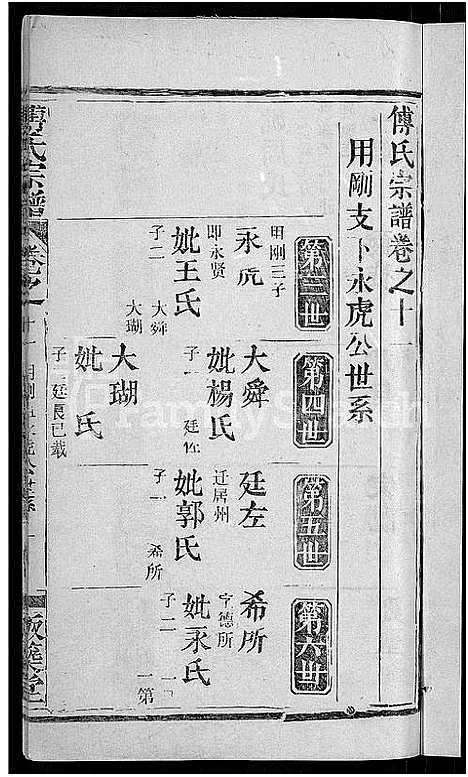 傅氏宗譜卷之十一
用剛支卜永虎公世系
第三世
第四世
第五世
第六世
永虎
用剛三子
即永賢
妣王氏
子二
大舜
大瑚
大舜
妣楊氏
子一
廷佐
大瑚
妣 氏
子一廷良已載
廷左
迁居州
妣郭氏
子一
希所
希所
字德所
妣永氏
子二
一第
傅氏宗譜
卷之十一